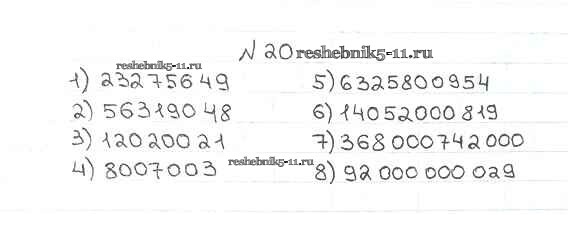 N 20 reshebnik5-11.ru
reshebnik5-11.ru
1) 23275649
2) 56319048
3) 12020021
4) 8007003 reshebnik5-11.ru
5) 6325800954
6) 14052000819
7) 368000742000
8) 92000000029